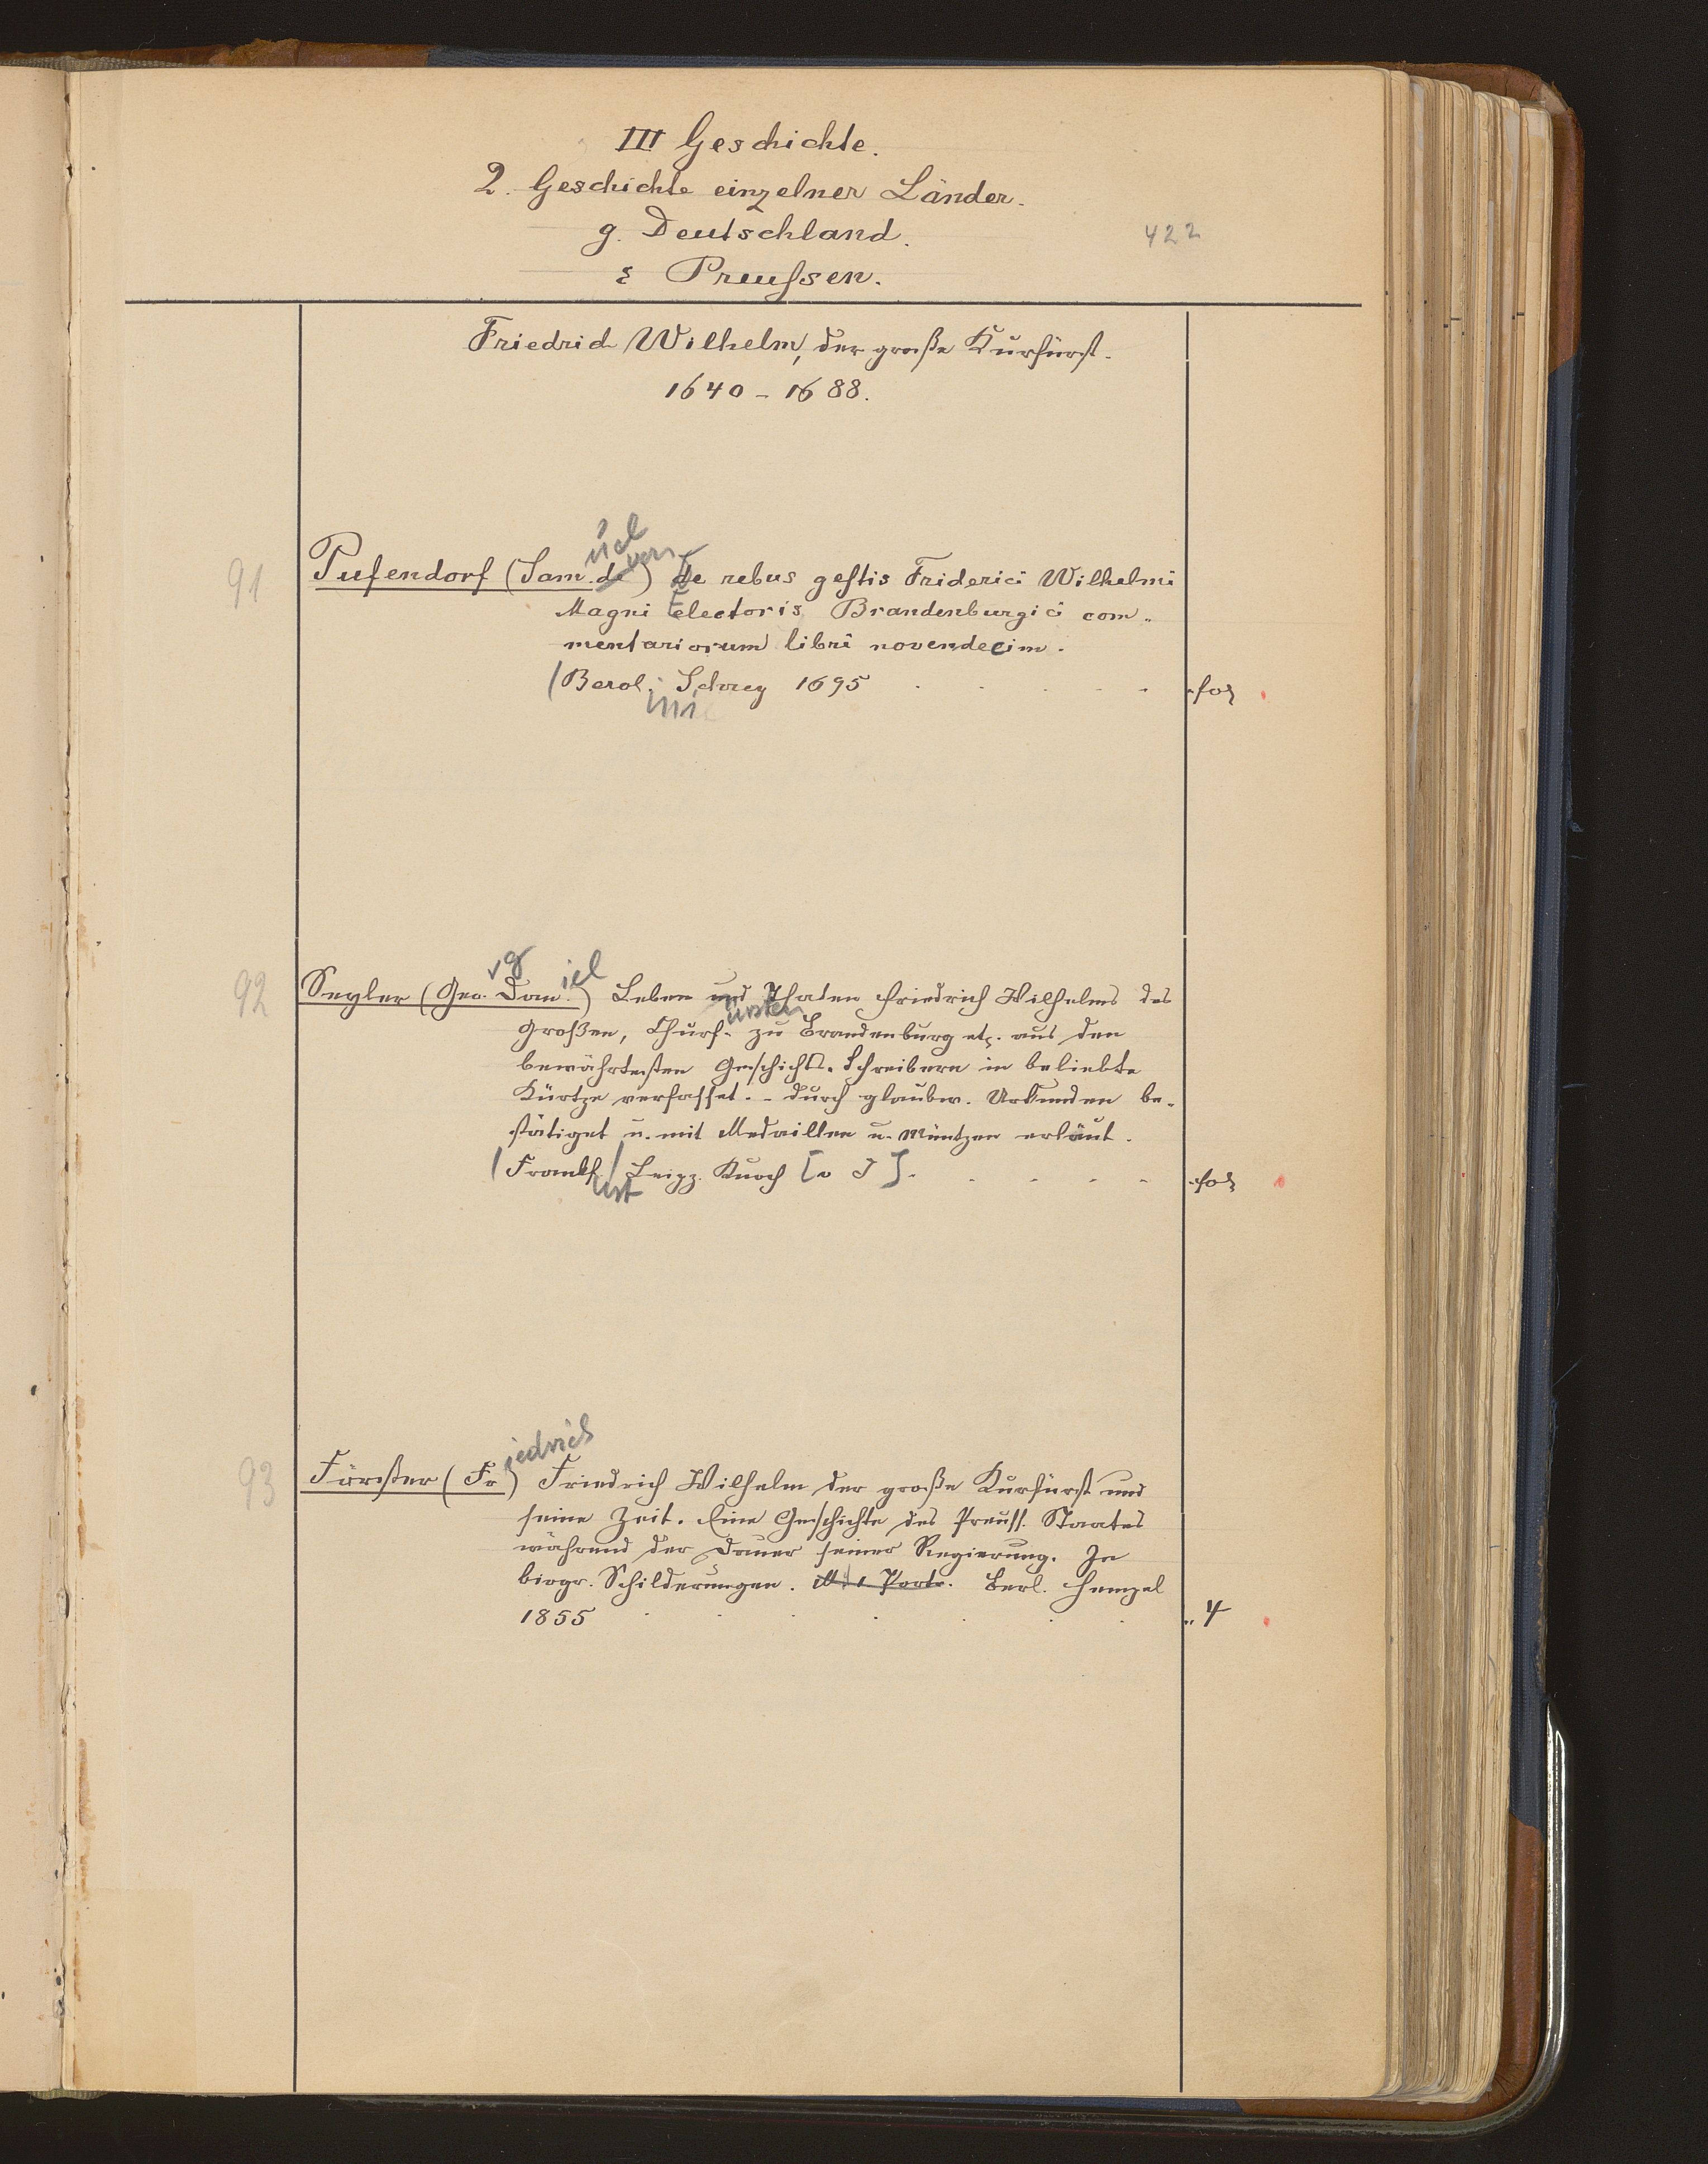 III Geschichte.
2. Geschichte einzelner Länder.
g. Deutschland.
422
ε Preußen.
Friedrich Wilhelm, der große Kurfürst.
1640 - 1688.
uel
von
91 Pufendorf (Sam. de) De rebus gestis Friderici Wilhelmi
Magni Electoris Brandenburgici com-
mentariorum libri novendecim.
Berol. Schrey 1695 . . . . . fol
ini
rg iel
92 Seyler (Geo. Dan.) Leben und Thaten Friedrich Wilhelms des
ürsten
Großen, Churf. zu Brandenburg etc. aus den
bewährtesten Geschicht-Schreibern in beliebte
Kürtze verfasset. - durch glaubw. Urkunden be-
stätiget u. mit Medaillen u. Müntzen erläut.
Frankf. Leipz. Knoch [o J] . . . . . fol
urt
iedrich
93 Förster (Fr) Friedrich Wilhelm der große Kurfürst und
seine Zeit. Eine Geschichte des Preuss. Staates
während der Dauer seiner Regierung. In
biogr. Schilderungen. M. 1 Portr. Berl. Hempel
1855 . . . . . . . 4